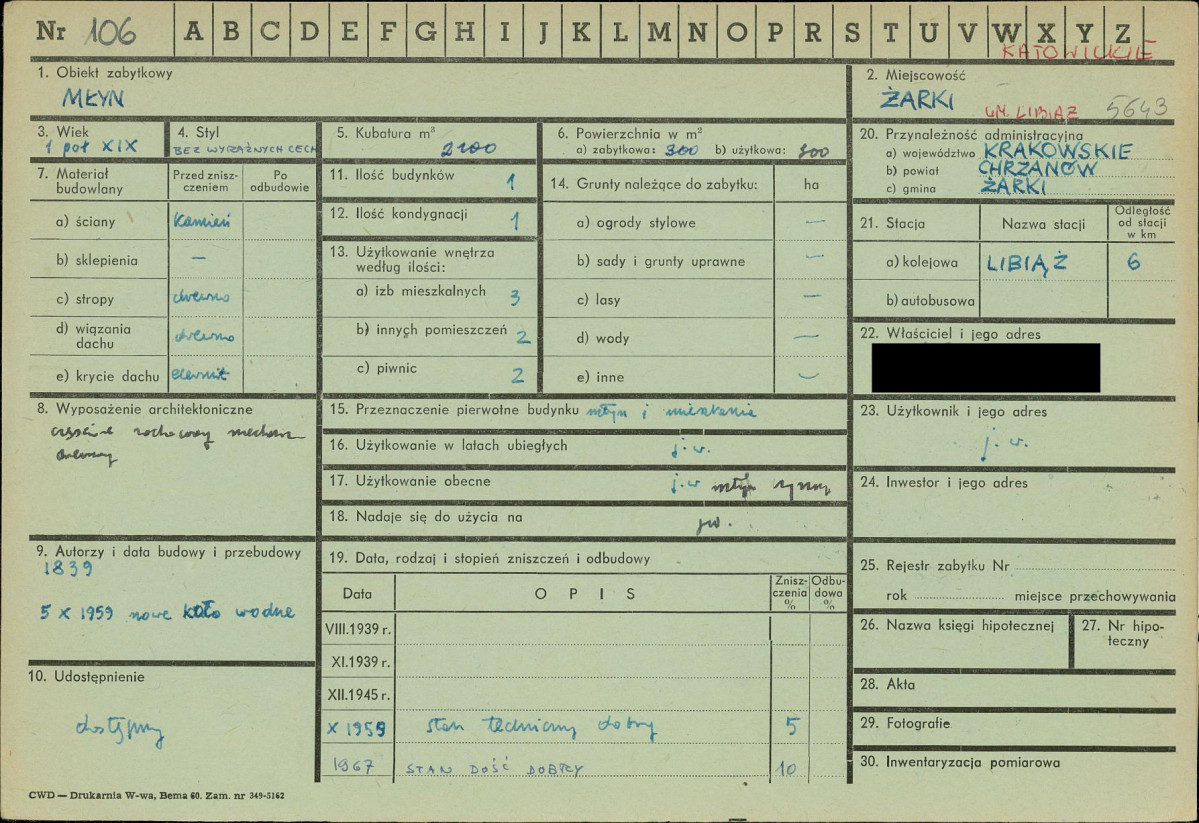 Nr 106 A B C D E F G H I J K L M N O P R S T U V W X Y Z
KATOWICKIE
1. Obiekt zabytkowy
MŁYN
2. Miejscowość
ŻARKI GM. LIBIĄŻ 5643
3. Wiek
1 poł XIX
4. Styl
BEZ WYRAŹNYCH CECH
5. Kubatura m³
2100
6. Powierzchnia w m²
a) zabytkowa: 300 b) użytkowa: 300
20. Przynależność administracyjna
a) województwo KRAKOWSKIE
b) powiat CHRZANÓW
c) gmina ŻARKI
7. Materiał budowlany
Przed zniszczeniem
Po odbudowie
a) ściany kamień
b) sklepienia —
c) stropy drewno
d) wiązania dachu drewno
e) krycie dachu eternit
11. Ilość budynków 1
12. Ilość kondygnacji 1
13. Użytkowanie wnętrza
według ilości:
a) izb mieszkalnych 3
b) innych pomieszczeń 2
c) piwnic 2
14. Grunty należące do zabytku: ha
a) ogrody stylowe —
b) sady i grunty uprawne —
c) lasy —
d) wody —
e) inne —
21. Stacja
Nazwa stacji
Odległość od stacji w km
a) kolejowa LIBIĄŻ 6
b) autobusowa
22. Właściciel i jego adres
8. Wyposażenie architektoniczne
drewny
15. Przeznaczenie pierwotne budynku młyn i mieszkanie
16. Użytkowanie w latach ubiegłych j.w.
17. Użytkowanie obecne j.w młyn
18. Nadaje się do użycia na jw.
23. Użytkownik i jego adres
j.w.
24. Inwestor i jego adres
9. Autorzy i data budowy i przebudowy
1839
5 X 1959 nowe koło wodne
19. Data, rodzaj i stopień zniszczeń i odbudowy
Data
OPIS
Zniszczenia %
Odbudowa %
VIII.1939 r.
XI.1939 r.
XII.1945 r.
X 1959 stan techniczny dobry 5
1967 STAN DOŚĆ DOBRY 10
25. Rejestr zabytku Nr
rok miejsce przechowywania
26. Nazwa księgi hipotecznej
27. Nr hipoteczny
10. Udostępnienie
dostępny
28. Akta
29. Fotografie
30. Inwentaryzacja pomiarowa
CWD — Drukarnia W-wa, Bema 60. Zam. nr 349-5162